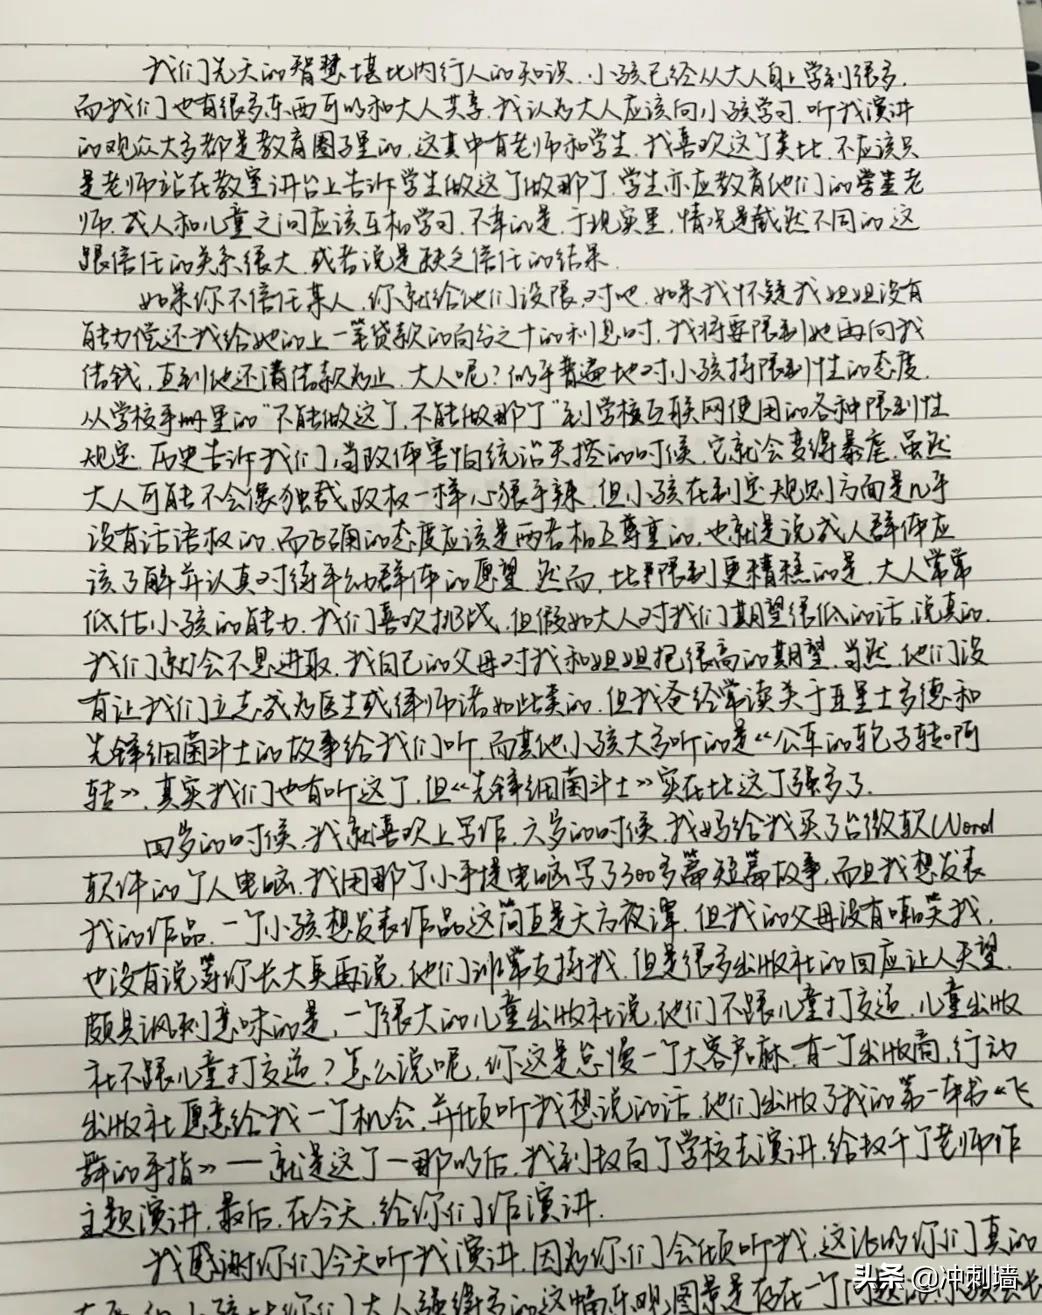 我们先天的智慧堪比内行人的知识.小孩已经从大人身上学到很多,
而我们也有很多东西可以和大人共享.我认为大人应该向小孩学习.听我演讲
的观众大多都是教育圈子里的,这其中有老师和学生.我喜欢这个类比.不应该只
是老师站在教室讲台上告诉学生做这个做那个.学生亦应教育他们的老
师.成人和儿童之间应该互相学习.不幸的是,于现实里,情况是截然不同的.这
跟信任的关系很大.或者说是缺乏信任的结果.
如果你不信任某人,你就给他们设限,对吧.如果我怀疑我姐姐没有
能力偿还我给她的上一笔贷款的百分之十的利息时,我将要限制她再向我
借钱,直到她还清借款为止.大人呢?似乎普遍地对小孩持限制性的态度.
从学校手册里的"不能做这个,不能做那个"到学校互联网使用的各种限制性
规定.历史告诉我们,当政体害怕统治失控的时候,它就会变得暴虐.虽然
大人可能不会像独裁政权一样心狠手辣.但小孩在制定规则方面是几乎
没有话语权的.而正确的态度应该是两者相互尊重的,也就是说成人群体应
该了解并认真对待年幼群体的愿望.然而,比限制更糟糕的是,大人常常
低估小孩的能力.我们喜欢挑战,但假如大人对我们期望很低的话,说真的,
我们就会不思进取.我自己的父母对我和姐姐抱很高的期望.当然,他们没
有让我们立志成为医生或律师诸如此类的.但我爸经常读关于亚里士多德和
先锋细菌斗士的故事给我们听.而其他小孩大多听的是《公车的轮子转啊
转》.其实我们也有听这个,但《先锋细菌斗士》实在比这个强多了.
四岁的时候,我就喜欢上写作.六岁的时候,我妈给我买了台微软Word
软件的个人电脑.我用那个小手提电脑写了300多篇短篇故事,而且我想发表
我的作品.一个小孩想发表作品这简直是天方夜谭.但我的父母没有嘲笑我,
也没有说等你长大点再说.他们非常支持我.但是很多出版社的回应让人失望.
颇具讽刺意味的是,一个很大的儿童出版社说,他们不跟儿童打交道.儿童出版
社不跟儿童打交道?怎么说呢,你这是怠慢一个大客户嘛.有一个出版商,行动
出版社愿意给我一个机会,并倾听我想说的话.他们出版了我的第一本书《飞
舞的手指》—就是这个—那以后,我到数百个学校去演讲.给数千个老师作
主题演讲.最后,在今天,给你们作演讲.
我感谢你们今天听我演讲.因为你们会倾听我,这证明你们真的
头条 @冲刺墙